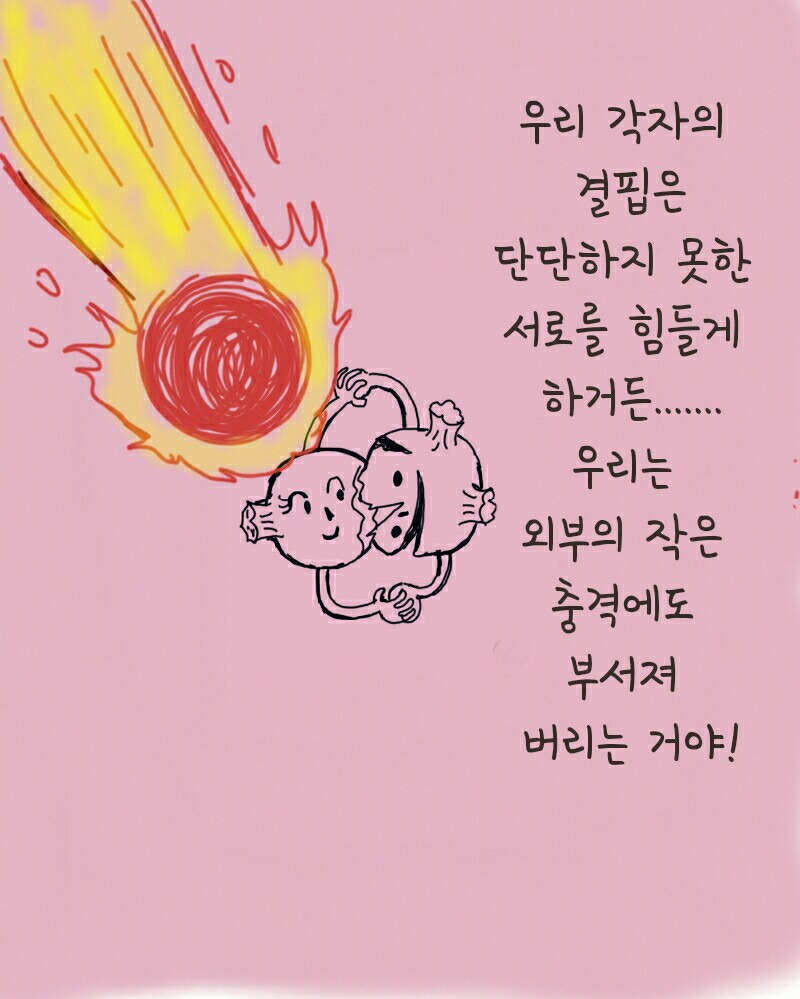 우리 각자의
결핍은
단단하지 못한
서로를 힘들게
하거든.......
우리는
외부의 작은
충격에도
부서져
버리는 거야!